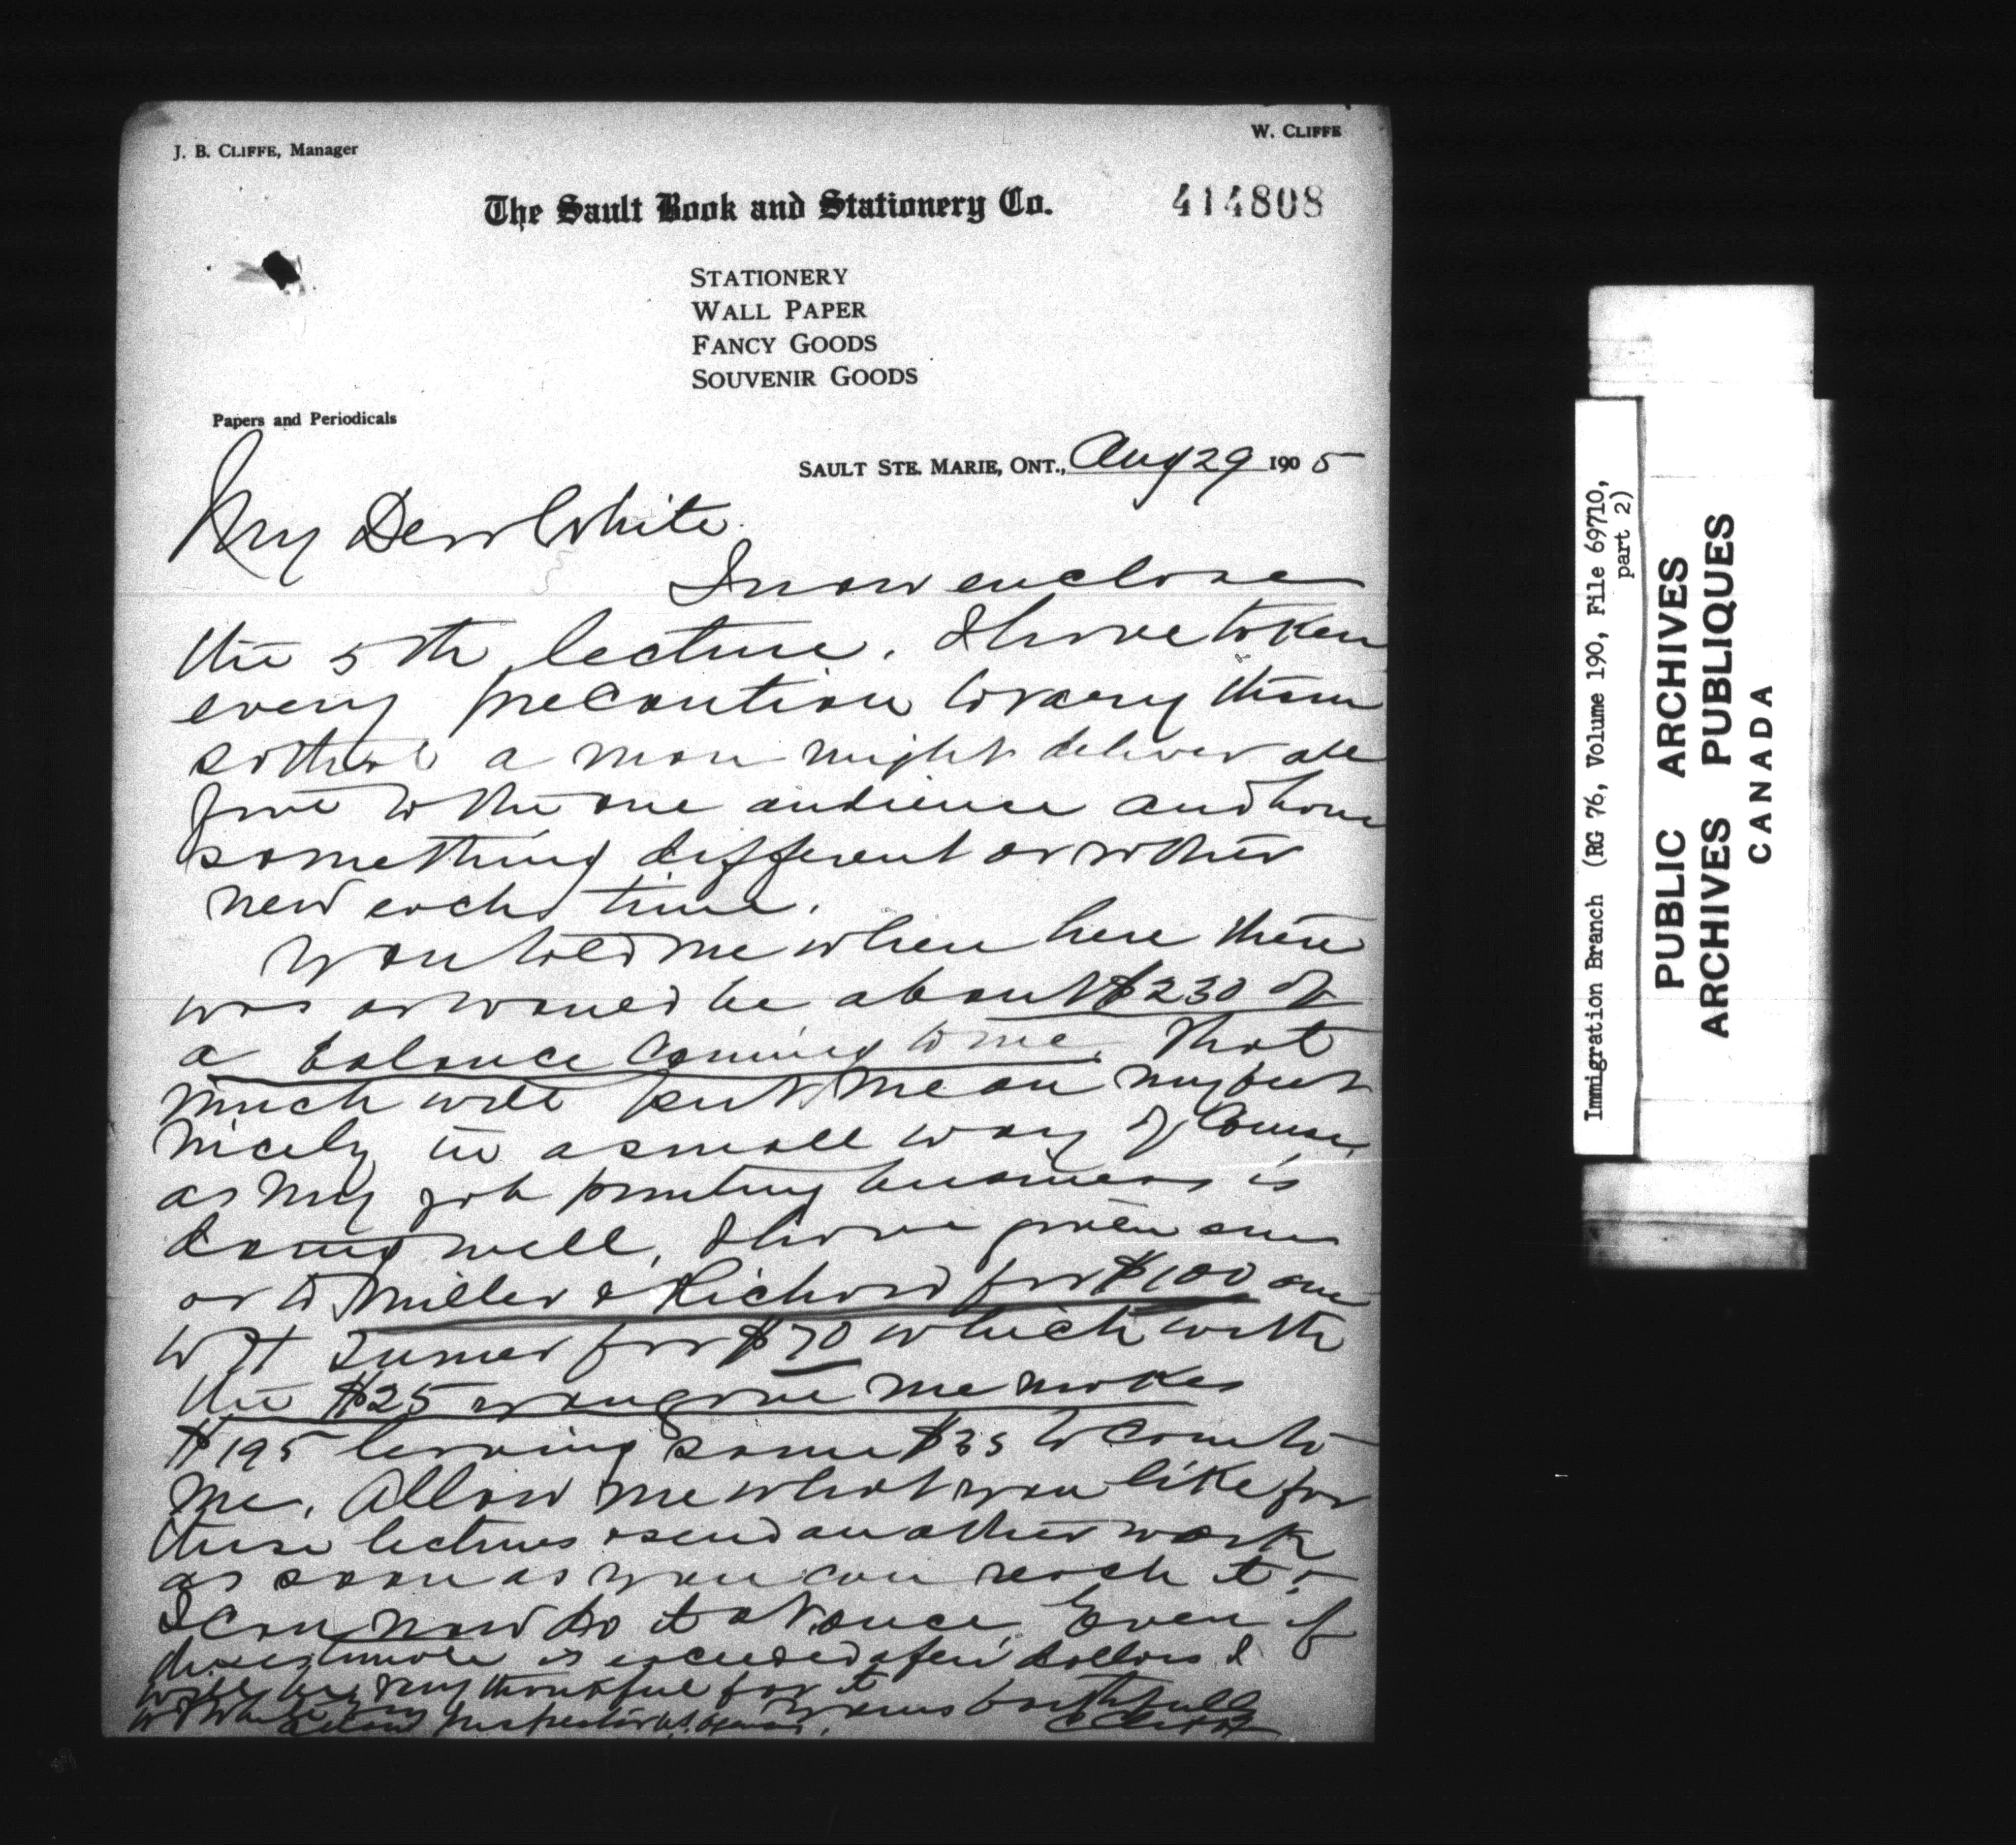 J. B. CLIFFE, Manager
W. CLIFFE
The Sault Book and Stationery Co.
414808
STATIONERY
WALL PAPER
FANCY GOODS
SOUVENIR GOODS
Papers and Periodicals
SAULT STE. MARIE, ONT., Aug 29 1905
My Dear White
I now enclose
the 5th lecture. I have taken
every precaution to vary them
so that a man might deliver all
five to the one audience and have
something different or rather
new each time.
You told me when here there
was or would be about $230 of
a balance coming to me. That
much will put me on my feet
nicely in a small way of course
as my job printing business is
doing well. I have given one
or to Miller & Richard for $100 one
to H for $70 which with
the $25 you gave me makes
$195 leaving some $35 to come to
me. Allow me what you like for
these lectures & send another work
as soon as you can reach it.
I can now do it at once. Even if
is exceeded a few dollars I
will be very thankful for it
Yours faithfully
W White Inspector
Immigration Branch (RG 76, Volume 190, File 69710,
part 2)
PUBLIC ARCHIVES
ARCHIVES PUBLIQUES
CANADA